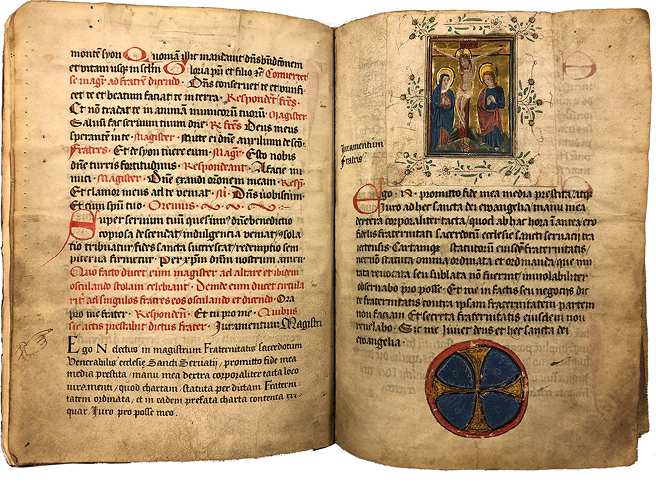 monte syon Quoniā illic mandavit dn̄s bn̄dictionem
et vitam usqȝ in sc̄lm Gloria pr̄i et filio &c̄ Convertet
se magr̄ ad fratrē dicendo · Dn̄s conservet te et vivifi
cet te et beatum faciat te in terra · Respondent fr̄es ·
Et nō tradat te in animā inimicorū tuorū · Magister
Salvū fac servum tuum dn̄e · R̄ fr̄es · Deus meus
sperantē in te · Magister · Mitte ei dn̄e auxiliū de sc̄o
Fratres · Et de syon tuere eum · Magr̄ · Esto nobis
dn̄e turris fortitudinis · Respondeant · A facie ini
mici · Magister · Dn̄e exaudi orōnem meam · Resp̄
Et clamor meus ad te veniat · Dn̄s vobiscum
Et cum spū tuo · Oremus
Super servum tuū quesumꝰ dn̄e benedictio
copiosa descendat / indulgencia veniat / sola
tio tribuatur / fides sancta succrescat / redemptio sem
piterna firmetur · Per xp̄m dn̄m nostrum amen
Quo facto ducet eum magister ad altare et ibidem
osculando stolam celebrant · Deinde eum ducet circula
rit̄ ad singulos fratres eos osculando et dicendo · Ora
pro me frater · Respondēt · Et tu pro me · Quibus
sic actis prestabit dictus frater · Juramentum Magistri
Ego N electus in magistrum Fraternitatis sacerdotum
Venerabilis ecclesie Sancti Servatii, promitto fide mea
media prestita / manu mea dextra corporaliter tacta loco
iuramenti / quod chartam, statuta per dictam Fraterni
tatem ordinata, et in eadem prefata charta contenta ex=
quar. Iuro pro posse meo.
Juramentum
Fratris
Ego · N · promitto fide mea media prestita / atqȝ
iuro ad hec sancta dei ewangelia manu mea
dextera corporaliter tacta / quod ab hac hora in antea ero
fidelis fraternitati sacerdotū ecclesie sancti servatii tra
iectensis Cartamqȝ statutorū eiusdē fraternitatis /
necnō statuta omnia ordinata et ordinanda / que mu
tata revocata seu sublata nō fuerint / inviolabiliter
observabo pro posse · Et me in factis seu negociis dic
te fraternitatis contra ipsam fraternitatem partem
non faciam Et secreta fraternitatis eiusdem non
revelabo · Sic me iuvet deus et hec sancta dei
ewangelia ·